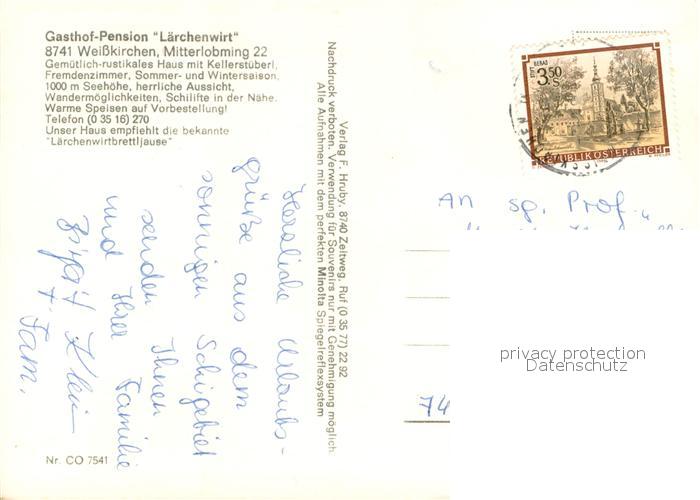 Gasthof-Pension "Lärchenwirt"
8741 Weißkirchen, Mitterlobming 22
Gemütlich-rustikales Haus mit Kellerstüberl,
Fremdenzimmer, Sommer- und Wintersaison,
1000 m Seehöhe, herrliche Aussicht,
Wandermöglichkeiten, Schilifte in der Nähe.
Warme Speisen auf Vorbestellung!
Telefon (0 35 16) 270
Unser Haus empfiehlt die bekannte
"Lärchenwirtbrettljause"
Herzliche Urlaubs-
grüße aus dem
sonnigen Schigebiet
senden Ihnen
und Ihrer Familie
Birgit Klein
+ Fam.
Nr. CO 7541
Verlag F. Hruby, 8740 Zeltweg, Ruf (0 35 77) 22 92
Nachdruck verboten. Verwendung für Souvenirs nur mit Genehmigung möglich.
Alle Aufnahmen mit dem perfekten Minolta Spiegelreflexsystem
3.50
S
REPUBLIK ÖSTERREICH
An sg. Prof.
74
privacy protection
Datenschutz